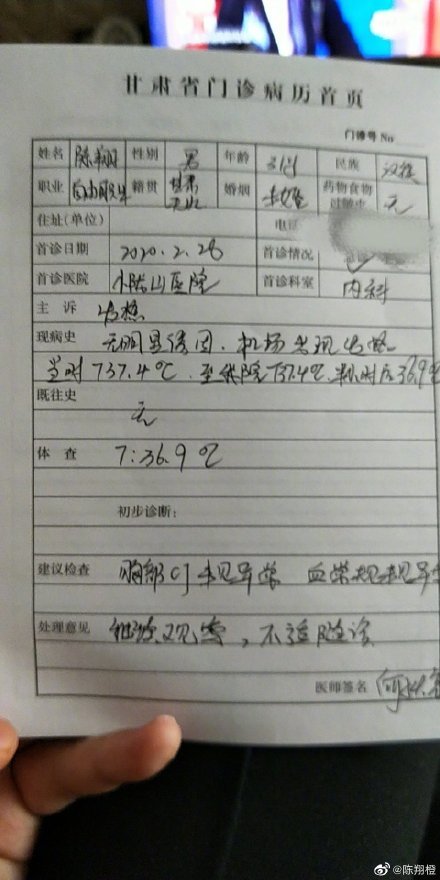 甘肃省门诊病历首页
门诊号 No
姓名 陈翔 性别 男 年龄 31岁 民族 汉族
职业 自由职业 籍贯 甘肃天水 婚姻 未婚 药物食物过敏史 无
住址(单位) 电话
首诊日期 2020.2.28 首诊情况
首诊医院 小陇山医院 首诊科室 内科
主 诉 发热
现病史 无明显诱因,机场发现发热
当时T37.4℃.至我院T37.4℃.半小时后36.9℃
既往史
无
体 查 T:36.9℃
初步诊断:
建议检查 胸部CT未见异常 血常规未见异常
处理意见 继续观察,不适随诊
医师签名 何
@陈翔橙